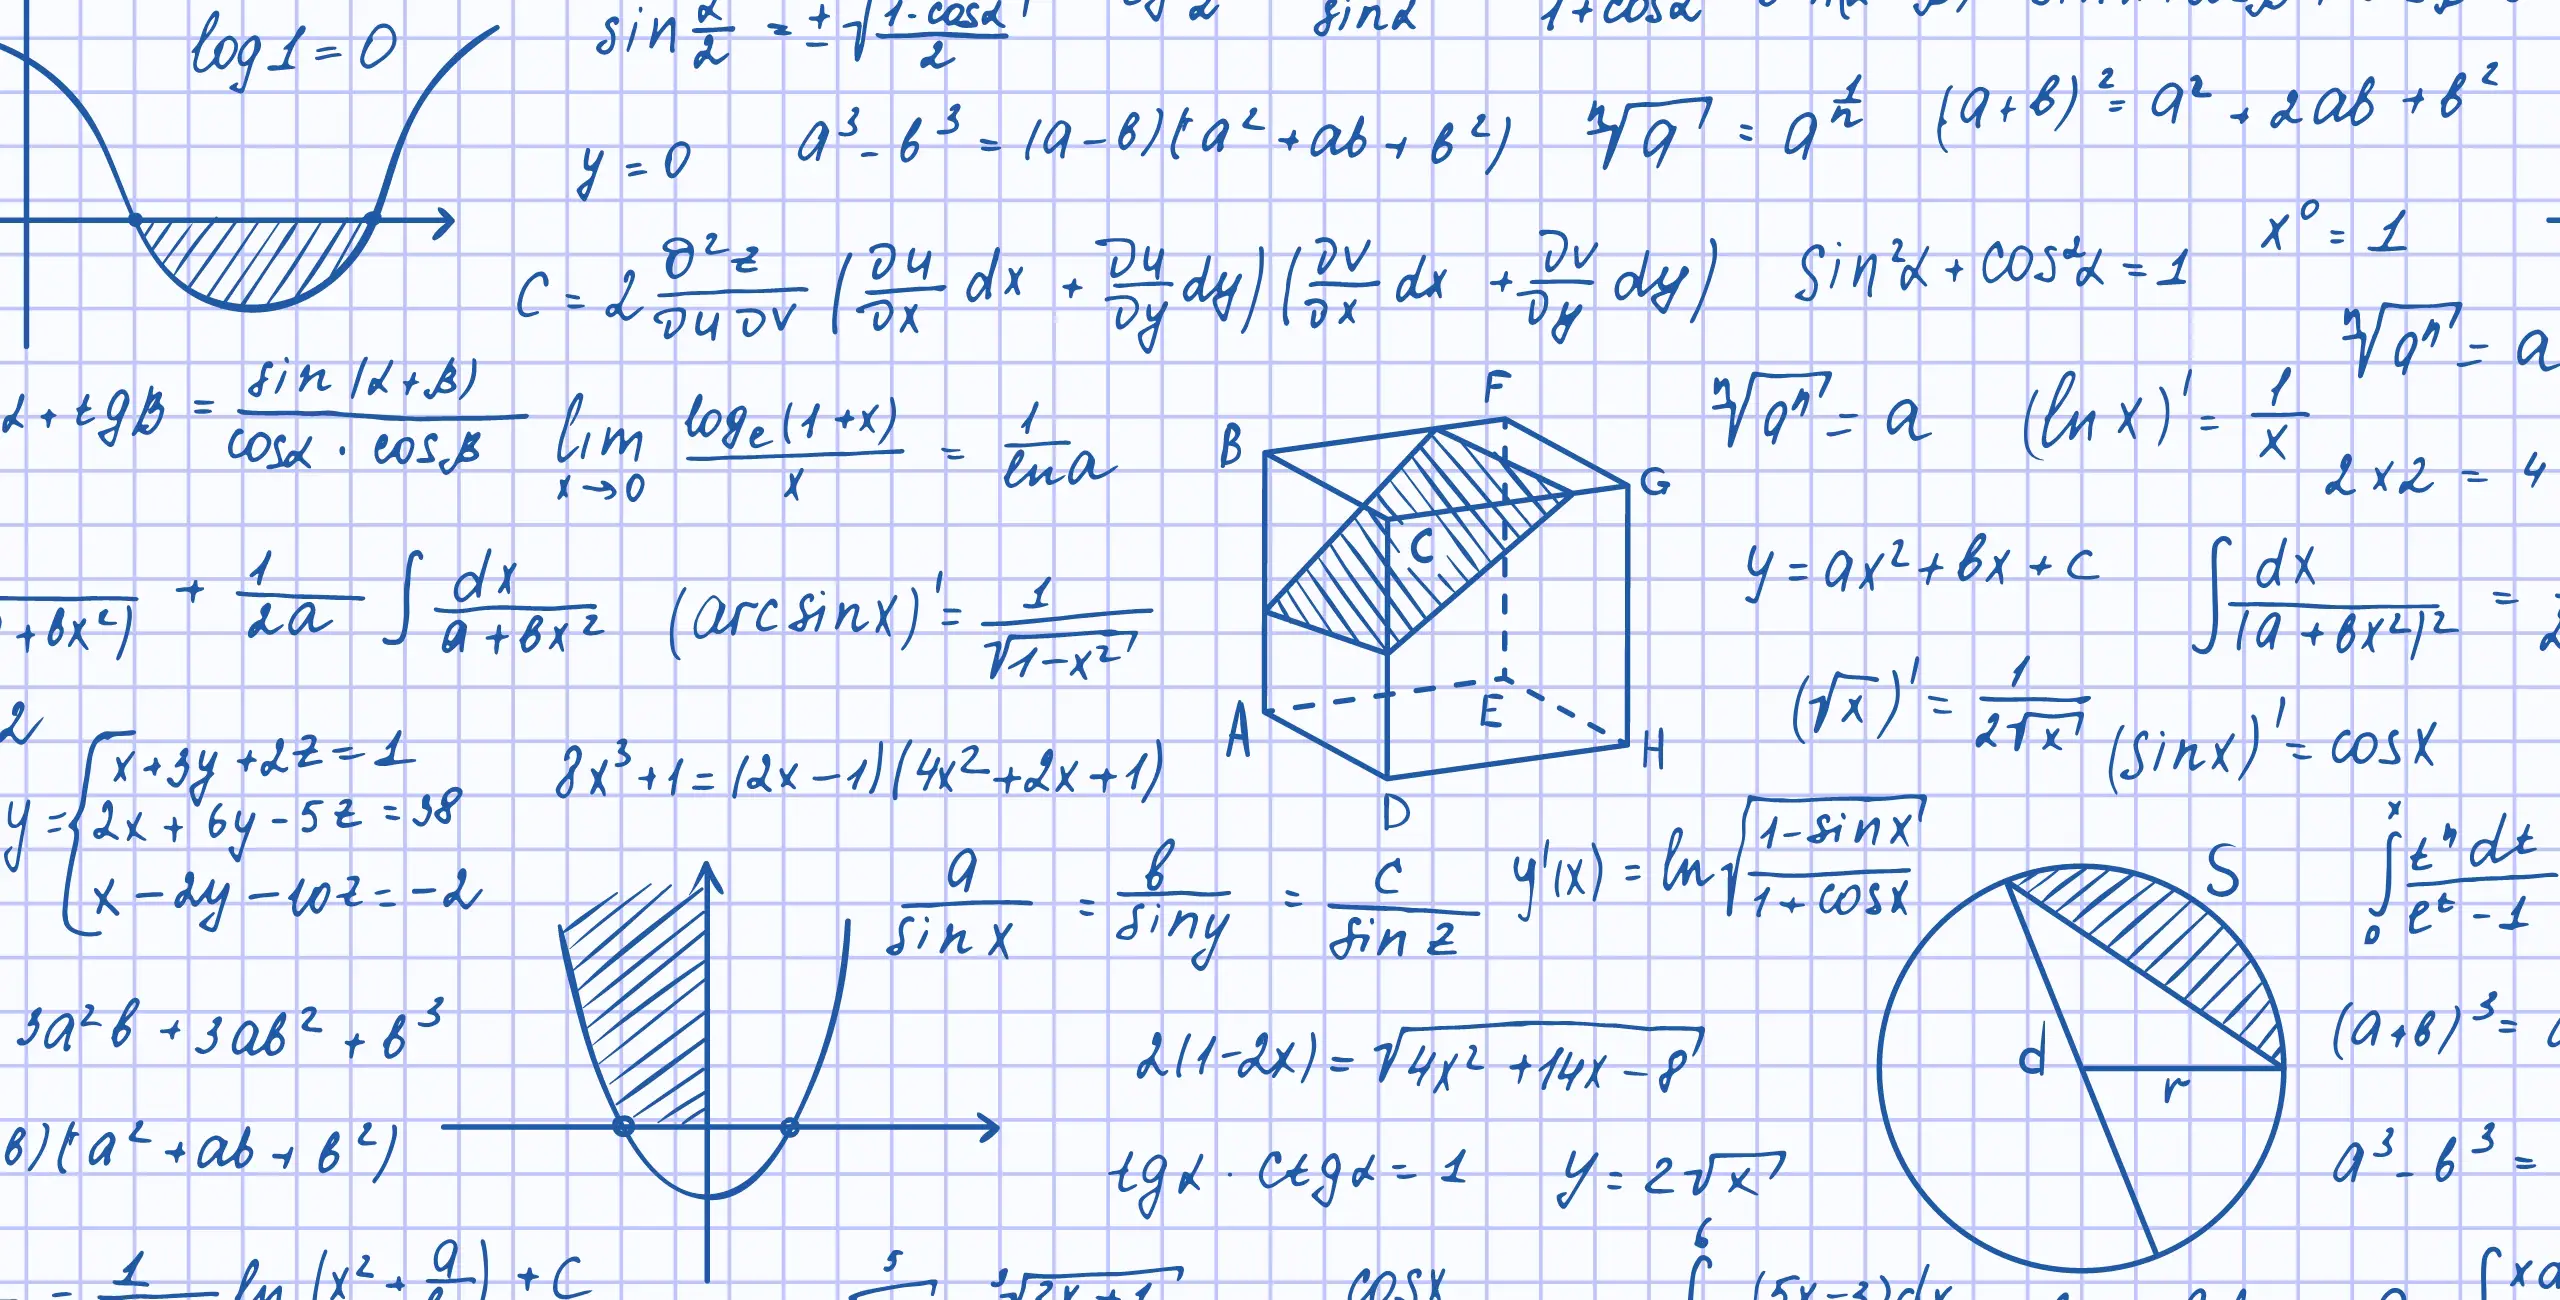 log1 = 0
sin α/2 = ± √((1-cosα)/2)
sinα
1+cosα
y = 0
a³ - b³ = (a-b)(+a² + ab + b²)
ⁿ√a = a^(1/n)
(a+b)² = a² + 2ab + b²
C = 2 ∂²z/∂u∂v (∂u/∂x dx + ∂u/∂y dy)(∂v/∂x dx + ∂v/∂y dy)
sin²α + cos²α = 1
x⁰ = 1
ⁿ√aⁿ = a
α + tgβ = sin(α+β)/(cosα · cosβ)
lim x→0 logₑ(1+x)/x = 1/ln a
B
F
G
C
A
E
H
D
ⁿ√aⁿ = a
(ln x)' = 1/x
2 x 2 = 4
+ bx²) + 1/2a ∫ dx/(a + bx²)
(arcsinx)' = 1/√(1-x²)
y = ax² + bx + c
∫ dx/(a + bx²)² =
(√x)' = 1/(2√x)
(sinx)' = cosx
2
y = { x + 3y + 2z = 1
2x + 6y - 5z = 38
x - 2y - 10z = -2
8x³ + 1 = (2x - 1)(4x² + 2x + 1)
a/sin x = b/sin y = c/sin z
y'(x) = ln √((1-sinx)/(1+cosx))
S
d
r
∫₀ˣ tⁿ dt/(eᵗ - 1)
3a²b + 3ab² + b³
2(1-2x) = √(4x² + 14x - 8)
(a+b)³ =
b)(+a² + ab + b²)
tgα · ctgα = 1
y = 2√x
a³ - b³ =
= 1
ln (x² + a
) + C
5
2x + 1
cosx
6
∫ (5x-3)dx
∫ xa